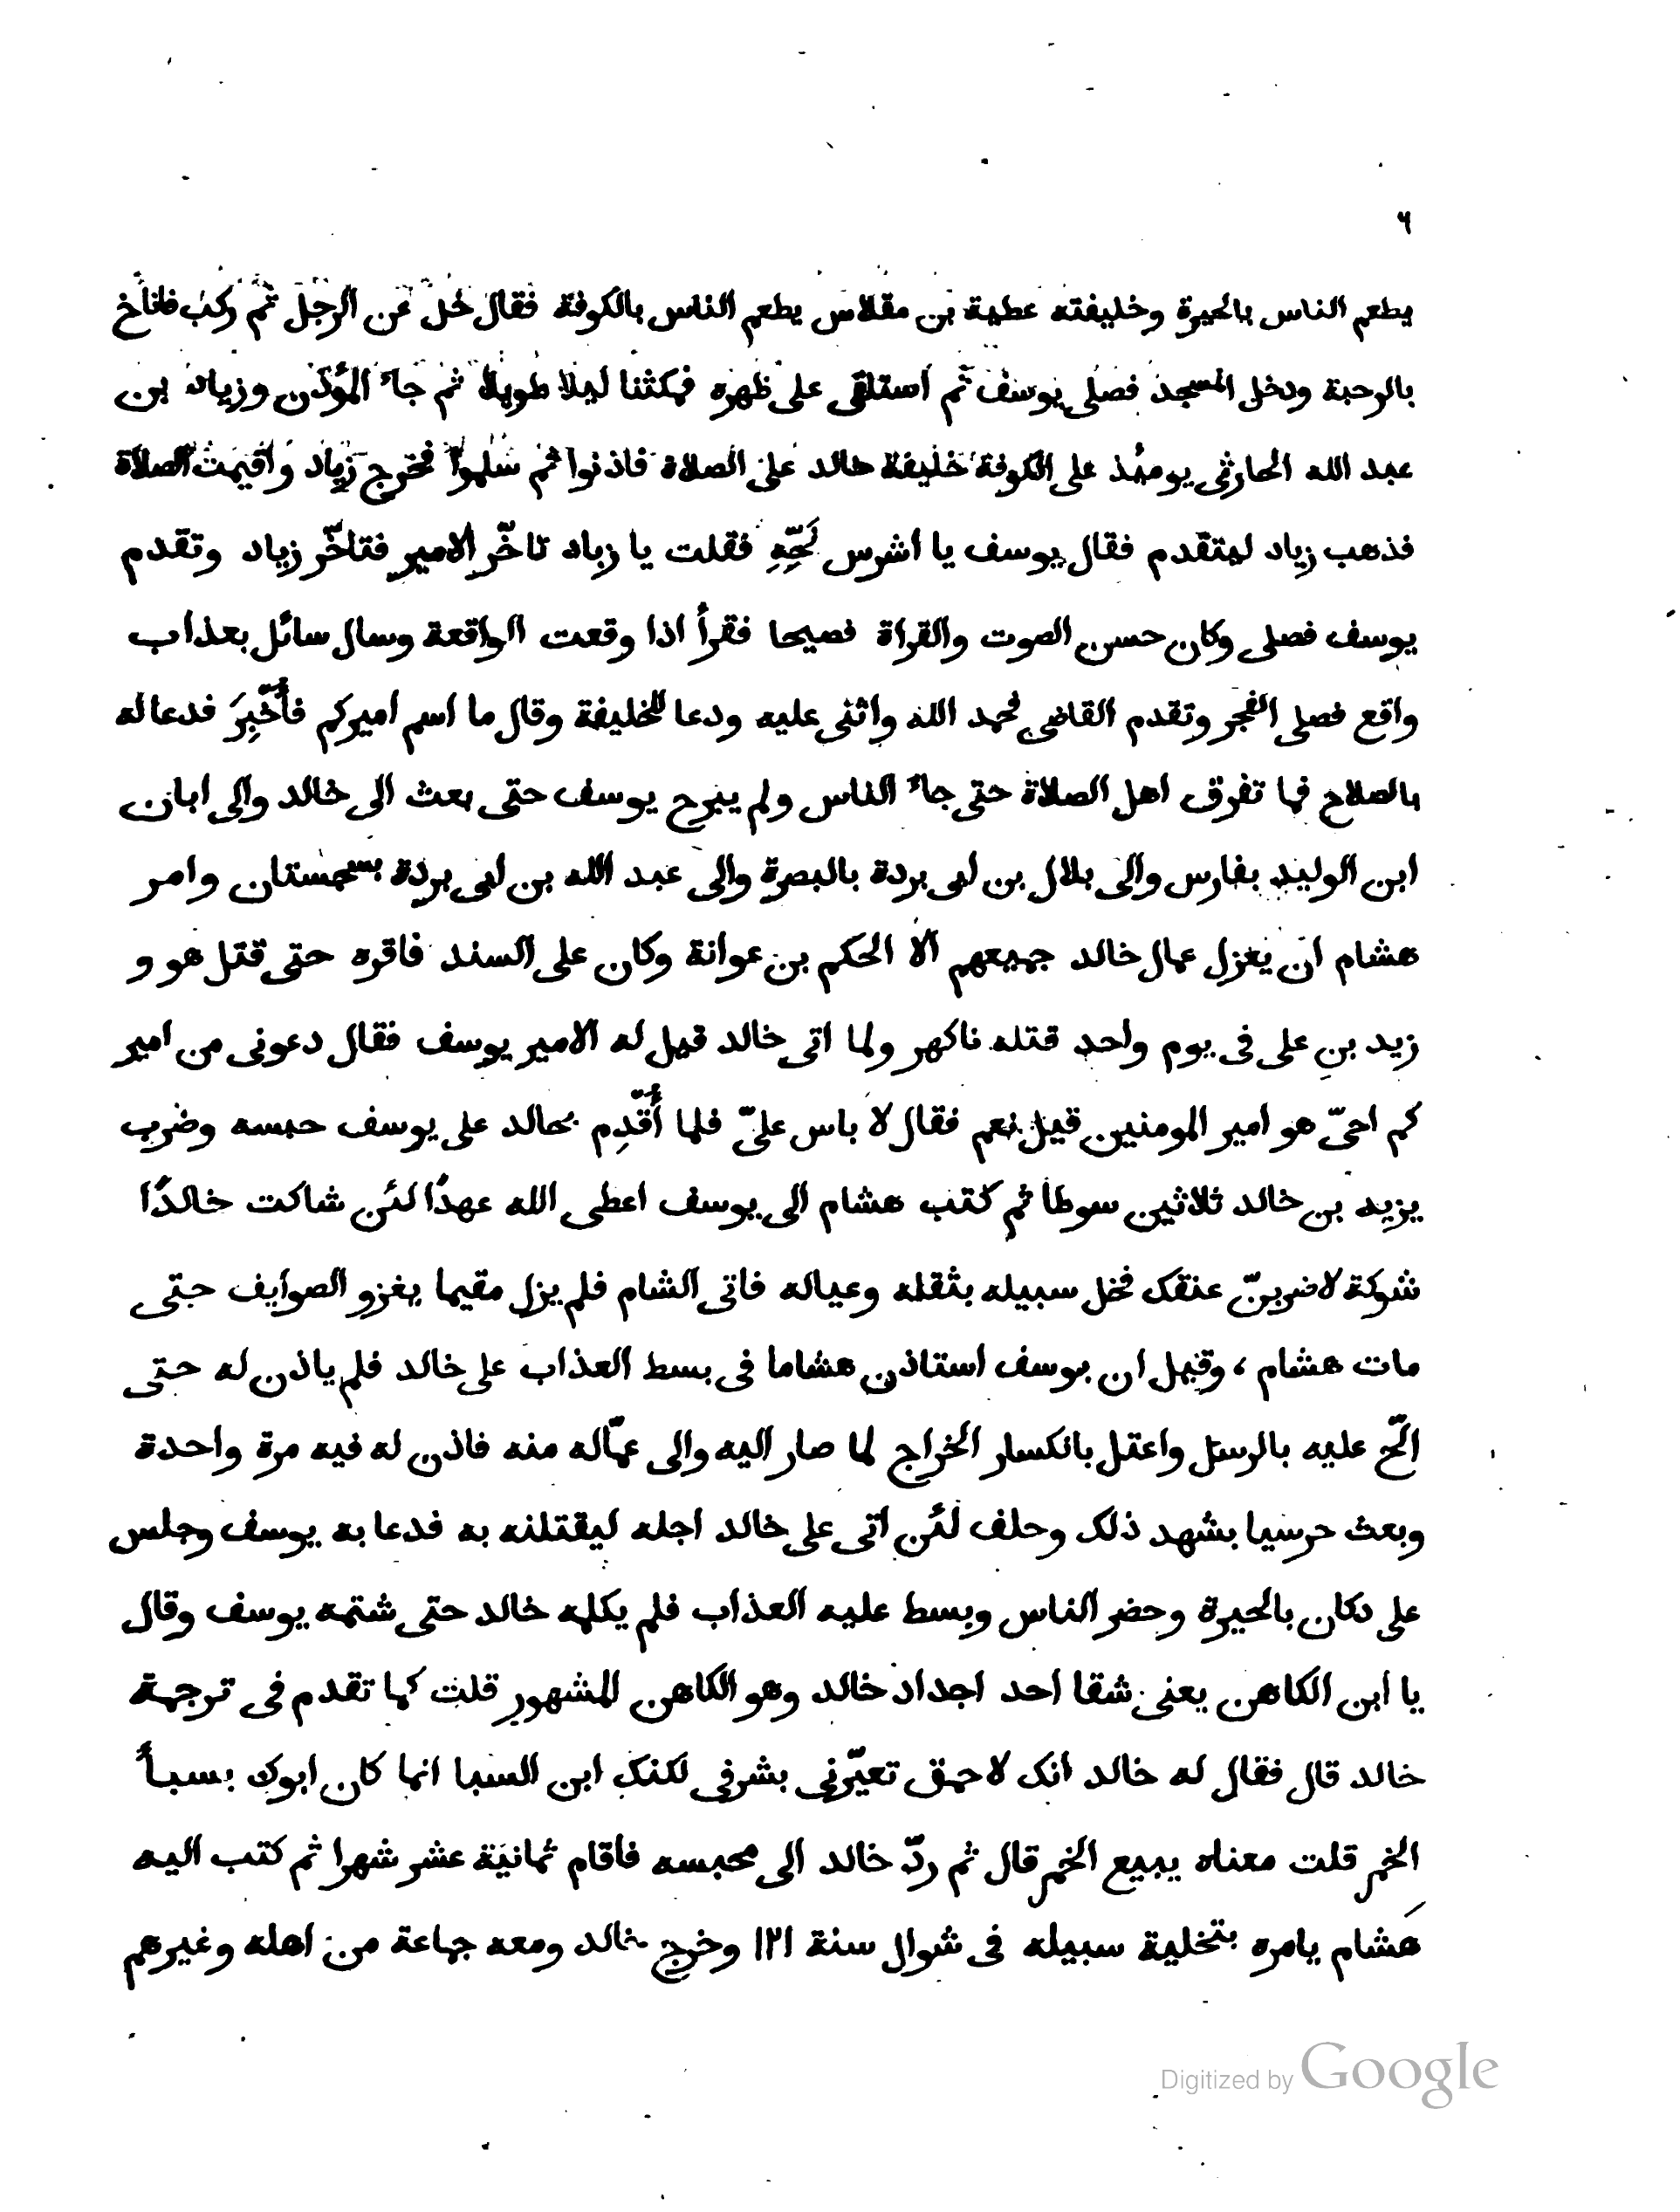 ٦
يطعم الناس بالحيرة وخليفته عطية بن مقلاس يطعم الناس بالكوفة فقال خل عن الرجل ثم ركب فاناخ
بالرحبة ودخل المسجد فصلى يوسف ثم استلقى على ظهره فمكثنا ليلا طويلا ثم جاء المؤذن وزياد بن
عبد الله الحارثى يومئذ على الكوفة خليفة خالد على الصلاة فاذنوا ثم سلموا فخرج زياد واقيمت الصلاة
فذهب زياد ليتقدم فقال يوسف يا اشرس نَحِّهِ فقلت يا زياد تاخّر الامير فتاخّر زياد وتقدم
يوسف فصلى وكان حسن الصوت والقراة فصيحا فقرأ اذا وقعت الواقعة وسال سائل بعذاب
واقع فصلى الفجر وتقدم القاضى فحمد الله واثنى عليه ودعا للخليفة وقال ما اسم اميركم فأُخْبِرَ فدعا له
بالصلاح فما تفرق اهل الصلاة حتى جاء الناس ولم يبرح يوسف حتى بعث الى خالد والى ابان
ابن الوليد بفارس والى بلال بن ابى بردة بالبصرة والى عبد الله بن ابى بردة بسجستان وامر
هشام ان يعزل عمال خالد جميعهم الا الحكم بن عوانة وكان على السند فاقره حتى قتل هو و
زيد بن على فى يوم واحد قتله ناكهر ولما اتى خالد قيل له الامير يوسف فقال دعونى من امير
كم احىّ هو امير المومنين قيل نعم فقال لا باس علىّ فلما أُقْدِم بخالد على يوسف حبسه وضرب
يزيد بن خالد ثلاثين سوطا ثم كتب هشام الى يوسف اعطى الله عهدًا لئن شاكت خالدًا
شوكة لاضربنّ عنقك فخل سبيله بثقله وعياله فاتى الشام فلم يزل مقيما يغزو الصوايف حتى
مات هشام ، وقيل ان يوسف استاذن هشاما فى بسط العذاب على خالد فلم ياذن له حتى
الحّ عليه بالرسل واعتل بانكسار الخراج لما صار اليه والى عمّاله منه فاذن له فيه مرة واحدة
وبعث حرسيا يشهد ذلك وحلف لئن اتى على خالد اجله ليقتلنه به فدعا به يوسف وجلس
على دكان بالحيرة وحضر الناس وبسط عليه العذاب فلم يكلمه خالد حتى شتمه يوسف وقال
يا ابن الكاهن يعنى شقا احد اجداد خالد وهو الكاهن المشهور قلت كما تقدم فى ترجمة
خالد قال فقال له خالد انك لاحمق تعيّرنى بشرفى لكنك ابن السبا انما كان ابوك يسبأ
الخمر قلت معناه يبيع الخمر قال ثم ردّ خالد الى محبسه فاقام ثمانية عشر شهرا ثم كتب اليه
هشام يامره بتخلية سبيله فى شوال سنة ١٢١ وخرج خالد ومعه جماعة من اهله وغيرهم
Digitized by Google